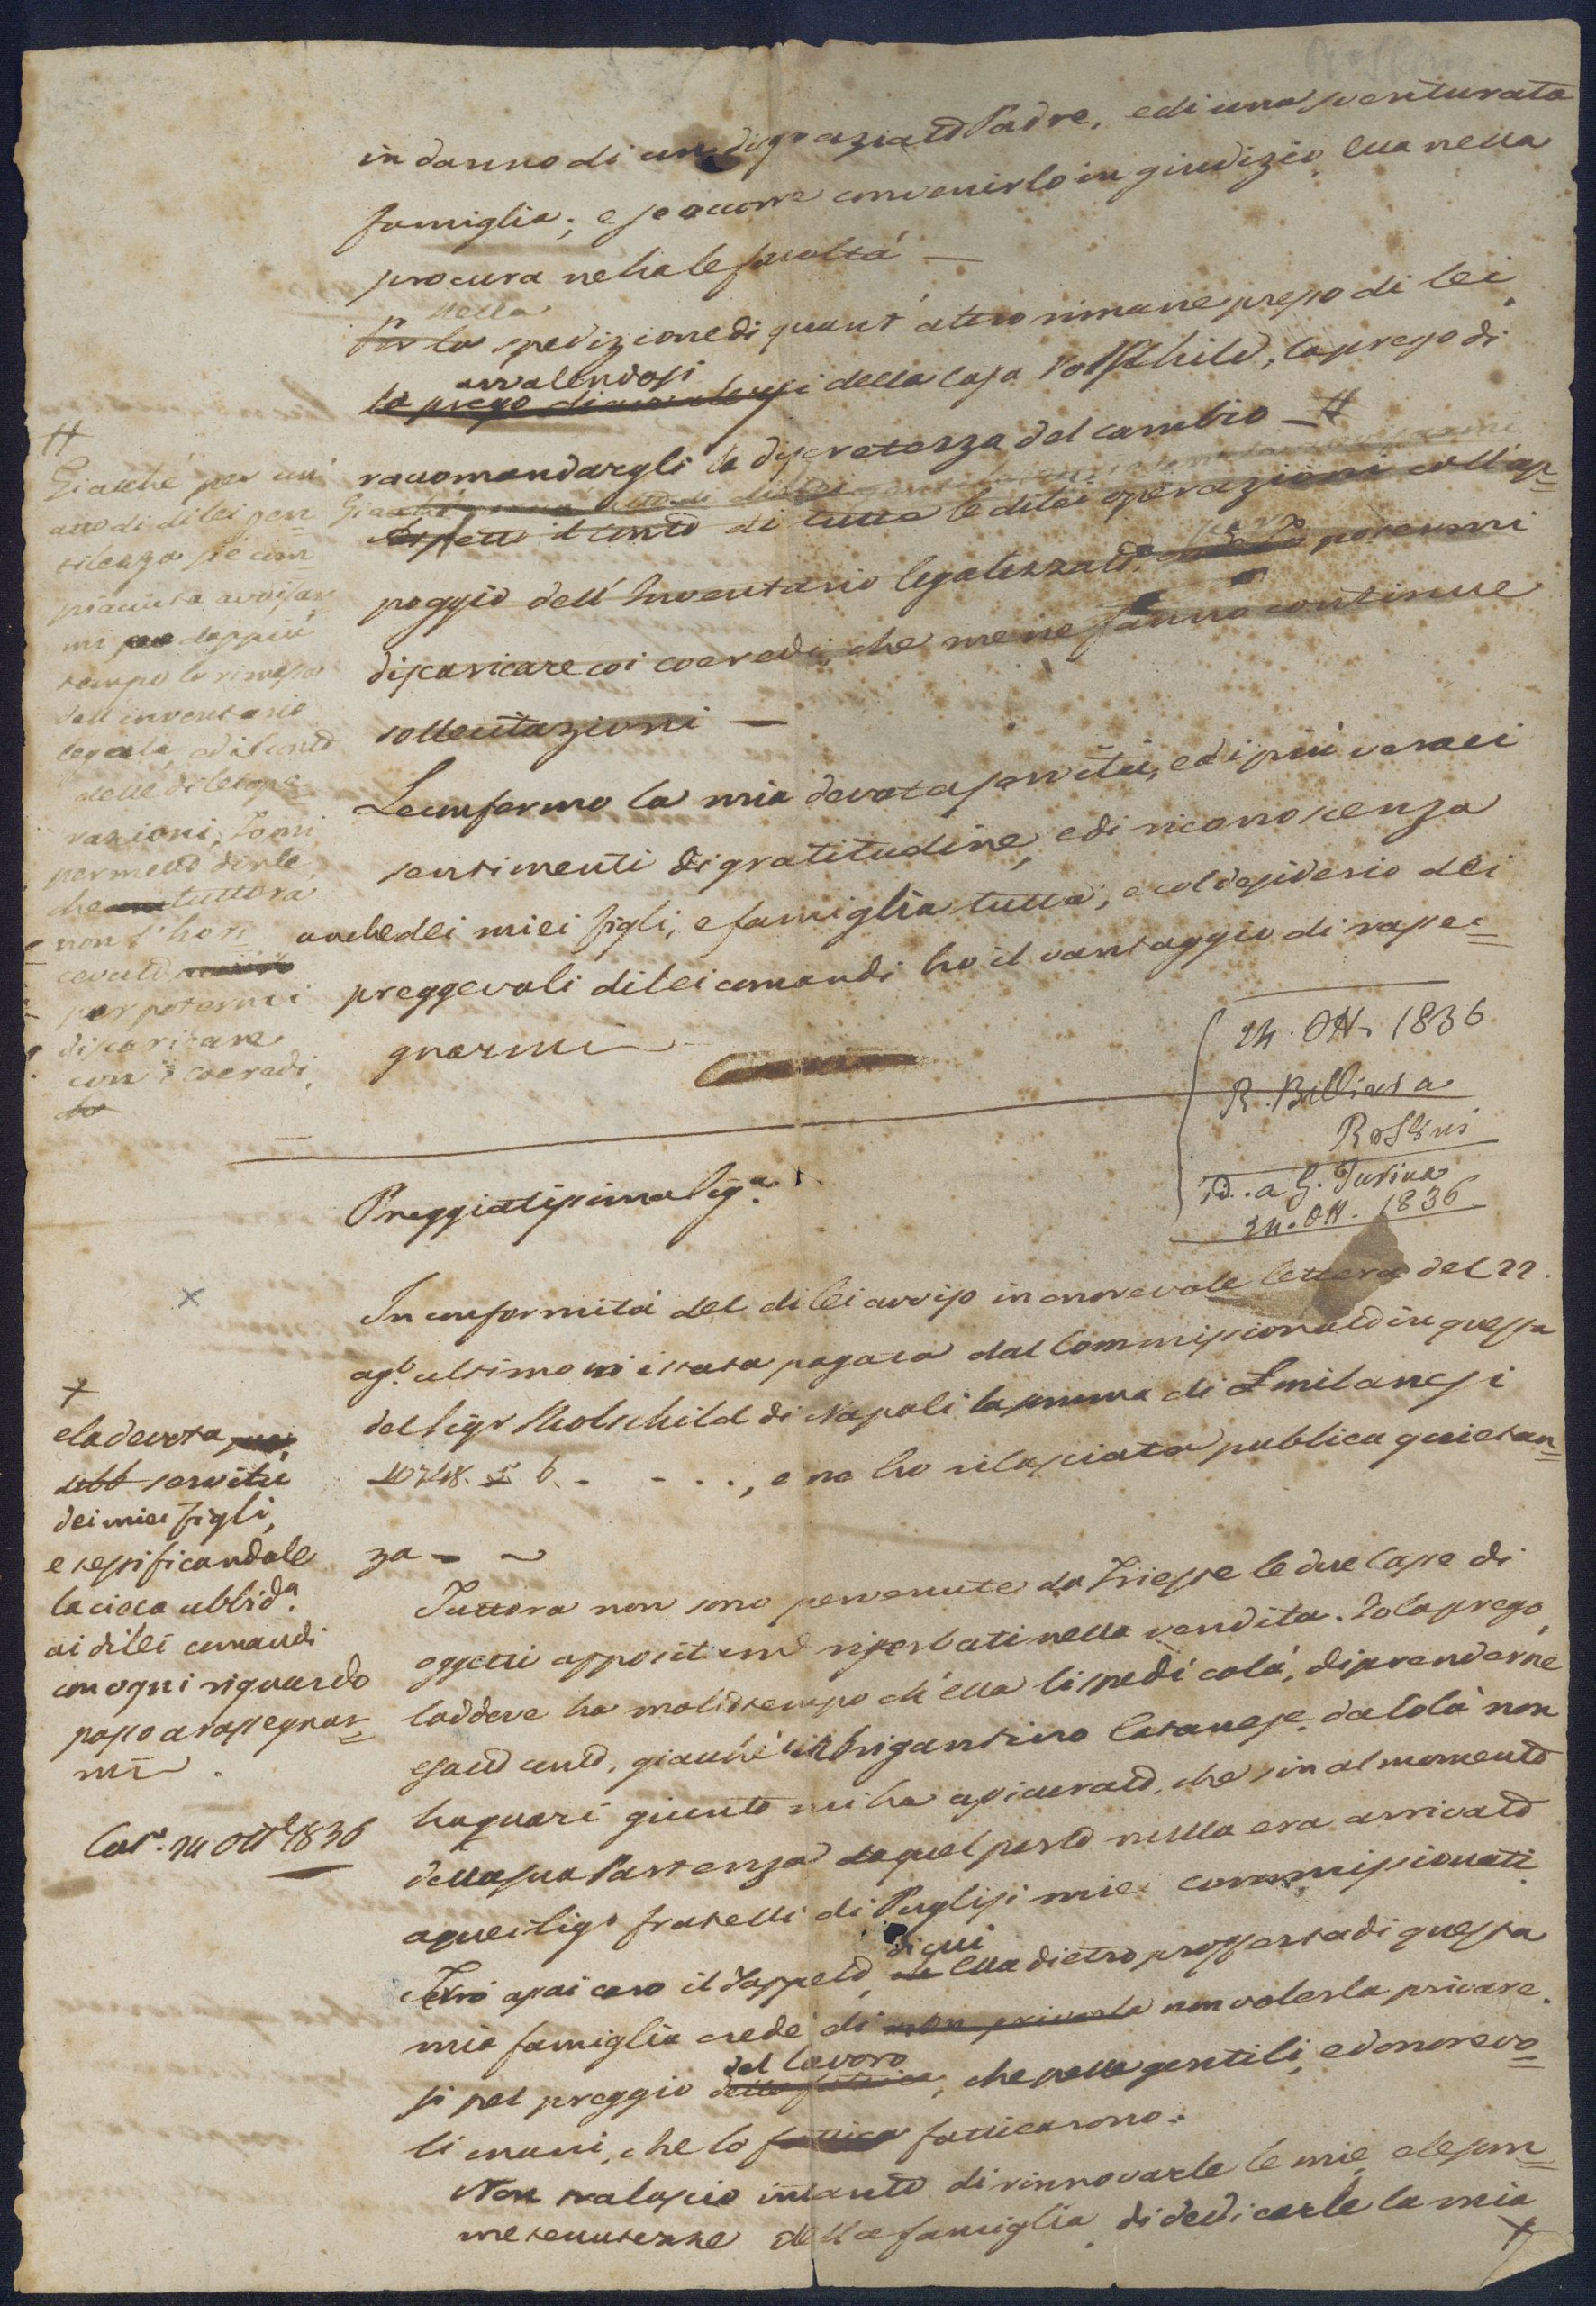 in danno di un disgraziato Padre, e di una sventurata
famiglia; e se occorre convenirlo in giudizio, Ella nella
procura ne ha le facoltà —
Nella
Per la spedizione di quant' altro rimane presso di lei,
avvalendosi
la prego di avvalersi della Casa Rothschild, la prego di
raccomandargli la discretezza del cambio — #
Giacché
Aspetto il conto di tutte le di lei operazioni coll'ap=
poggio dell'Inventario legalizzato, potermi
discaricare coi coeredi, che me ne fanno continue
sollecitazioni —
Le confermo la mia devota servitù, ed i più veraci
sentimenti di gratitudine, e di riconoscenza
anche dei miei figli, e famiglia tutta, e col desiderio dei
preggevoli di lei comandi ho il vantaggio di rasse=
gnarmi
#
Giacché per un'
atto di di lei gen
tilezza si è com
piaciuta avvisar
mi da più
tempo la rimessa
dell'inventario
legale, ed il conto
delle di lei ope=
razioni, Io mi
permetto dirle,
che tuttora
non l'ho ri=
cevuto
per potermi
discaricare
con i coeredi,
24. Ott. 1836
R. Billieta a
Rossini
Id. a G. Turina
24. Ott. 1836
Preggiatissima Sig.ª
In conformità del di lei avviso in onorevole lettera del 22.
ag.º ultimo mi è stata pagata dal Commissionato in questa
del Sig.r Rothschild di Napoli la somma di £ milanesi
10748. 5. 6. - - . . , e ne ho rilasciata publica quietan=
za - ~
Tuttora non sono pervenute da Trieste le due Casse di
oggetti appositam.e riserbati nella vendita. Io la prego,
laddove ha molto tempo ch'ella li spedì colà, di prenderne
esatto conto, giacché un brigantino Catanese, da colà non
ha guari giunto mi ha assicurato, che sin al momento
della sua Partenza da quel porto nulla era arrivato
a quei Sig.i fratelli di Puglisi miei commissionati.
di cui
assai caro il Tappeto, Ella dietro profferta di questa
mia famiglia crede di non privarla non volerla privare.
del lavoro
si pel preggio, che pelle gentili, ed onorevo=
li mani, che lo fatticarono.
Non tralascio intanto di rinnovarle le mie, e le som=
me tenutezze della famiglia, di dedicarle la mia +
+
e la devota
servitù
dei miei figli,
e testificandole
la cieca ubbid.ª
ai di lei comandi
con ogni riguardo
passo a rassegnar=
mi.
Cat.ª 24 Ott.e 1836